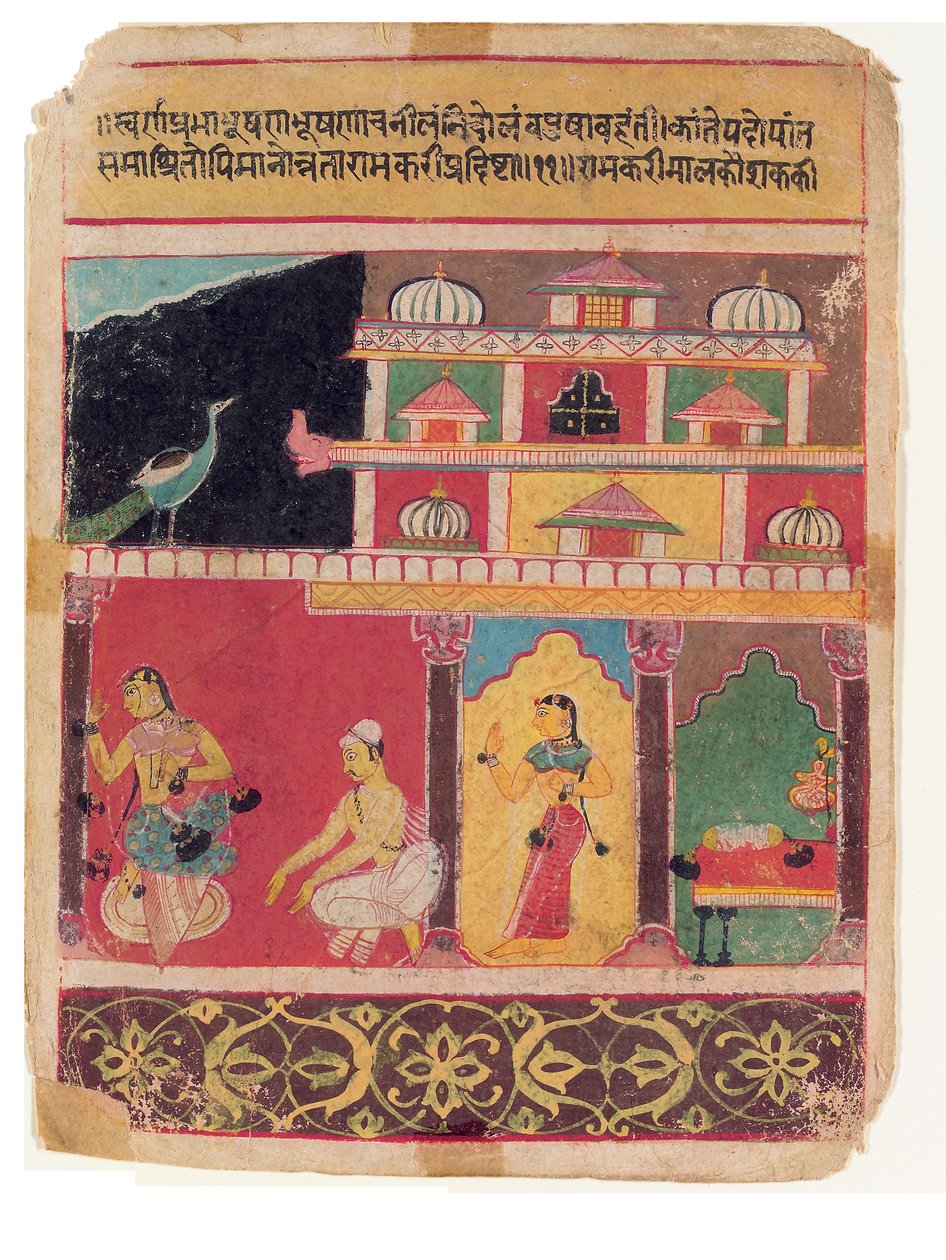 ॥स्वर्णप्रभाभूषणभूषणाचनीलंनिचोलंवपुषावहंती।कांतेपदोपांत
समाश्रितोपिमानोन्नतारामकरीप्रदिष्टा॥११॥रामकरीमालकौशककी